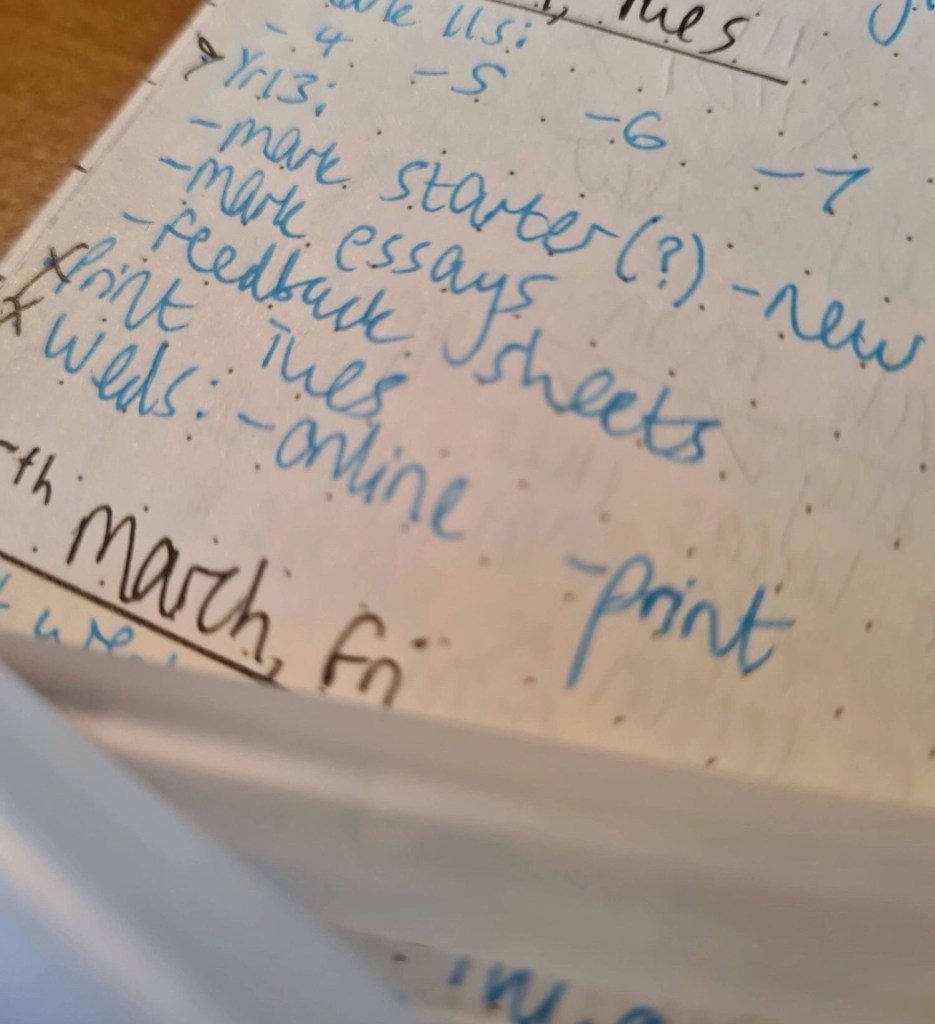 , Tues
11s:
- 4 - 5 - 6 - 7
> Yr13:
- mark starter (?) - new
- mark essays
- feedback sheets
x Print Tues
x Weds: - online - print
th March, Fri